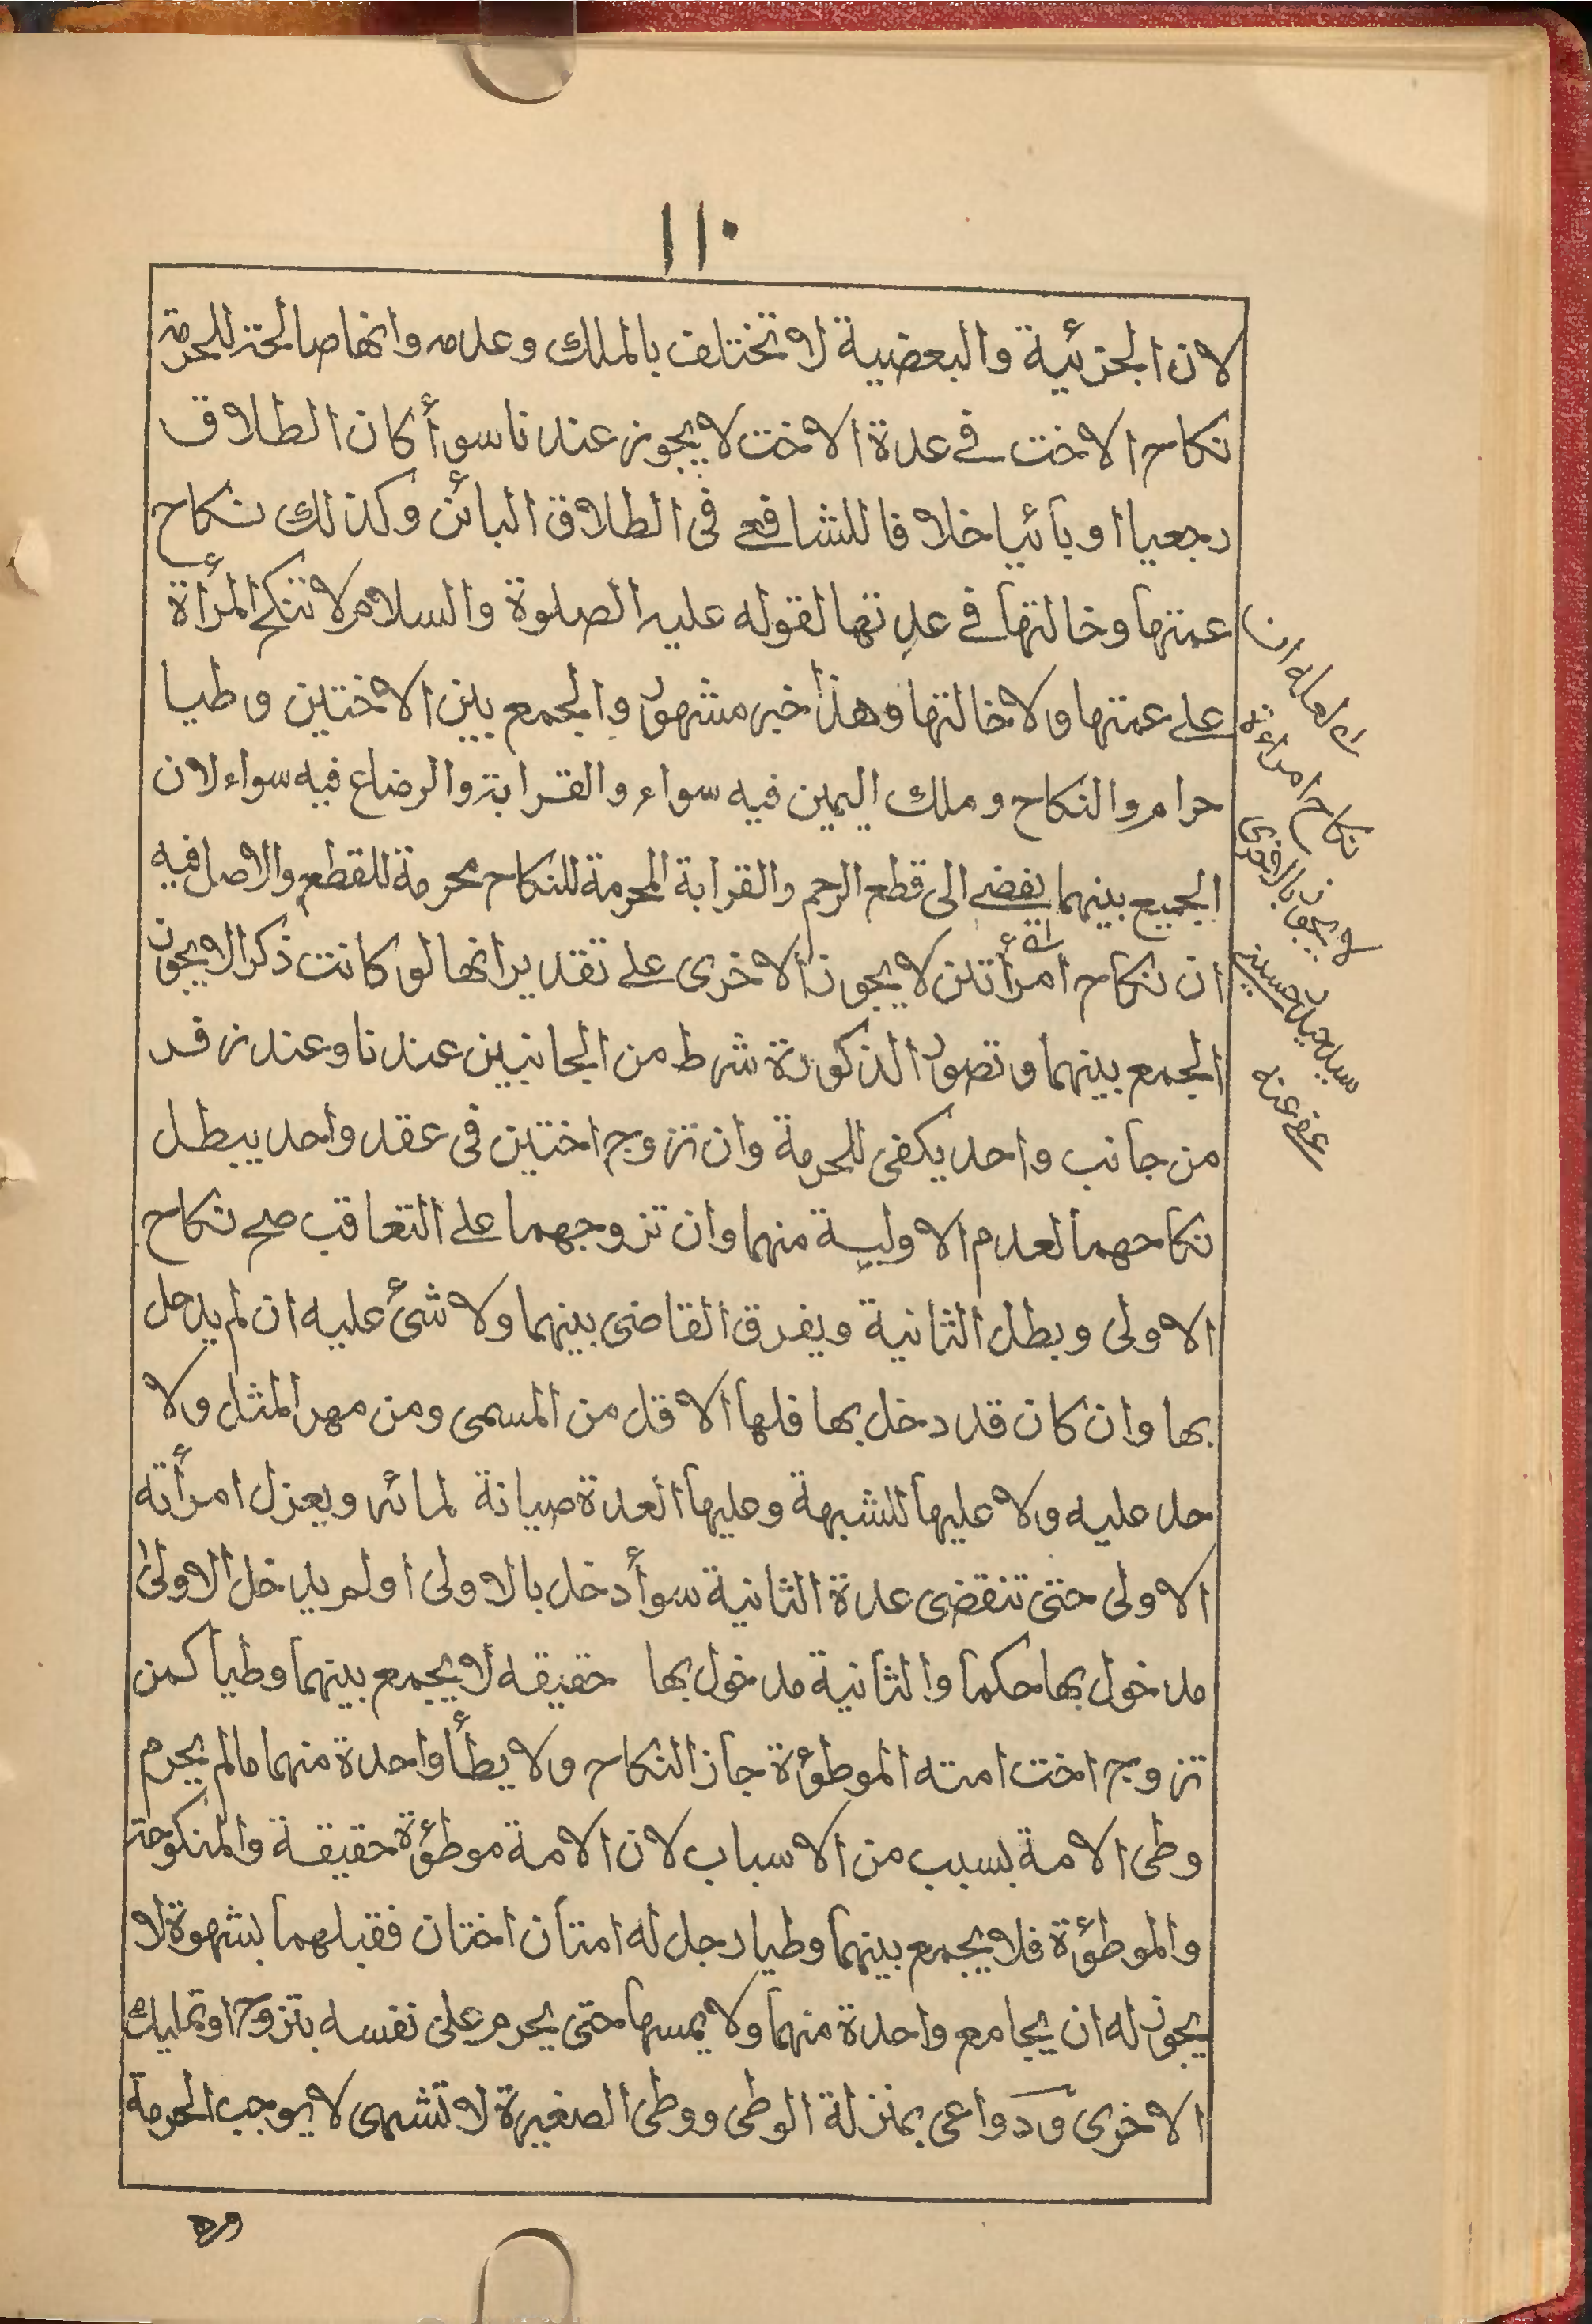 ١١٠
لان الجزئية والبعضية لا تختلف بالملك وعدمه وانها صالحة للحرمة
نكاح الاخت في عدة الاخت لا يجوز عندنا سوأ كان الطلاق
رجعيا او بائيا خلافا للشافعي فى الطلاق البائن وكذلك نكاح
عمتها وخالتها في عدتها لقوله عليه الصلوة والسلام لا تنكح المرأة
على عمتها ولا خالتها وهذا خبر مشهور والجمع بين الاختين وطيا
حرام والنكاح وملك اليمين فيه سواء والقرابة والرضاع فيه سواء لان
الجميع بينهما يفضے الى قطع الرحم والقرابة المحرمة للنكاح محرمة للقطع والاصل فيه
ان نكاح امرأتين لا يجوز الاخرى على تقدير انها لو كانت ذكرا لا يجوز
الجمع بينهما وتصور الذكورة شرط من الجانبين عندنا وعند زفر
من جانب واحد يكفى للحرمة وان تزوج اختين فى عقد واحد يبطل
نكاحهما لعدم الاولية منهما وان تزوجهما على التعاقب صح نكاح
الاولى وبطل الثانية ويفرق القاضى بينهما ولا شئ عليه ان لم يدخل
بها وان كان قد دخل بها فلها الاقل من المسمى ومن مهر المثل ولا
حد عليه ولا عليها للشبهة وعليها العدة صيانة لمائه ويعزل امرأته
الاولى حتى تنقضى عدة الثانية سوأ دخل بالاولى اولم يدخل الاولى
مدخول بها حكما والثانية مدخول بها حقيقه لا يجمع بينهما وطيا كمن
تزوج اخت امته الموطؤة جاز النكاح ولا يطأ واحدة منهما مالم يحرم
وطى الامة بسبب من الاسباب لان الامة موطؤة حقيقة والمنكوحة
والموطؤة فلا يجمع بينهما وطيا رجل له امتان اختان فقبلهما بشهوة لا
يجوز له ان يجامع واحدة منهما ولا يمسها حتى يحرم على نفسه بتزوج او تمليك
الاخرى ودواعى بمنزلة الوطى ووطى الصغيرة لا تشهى لا يوجب الحرمة
نكاح امراءة
لا يجوز بالاخرى
سيد حيدر حسينے
عفے عنه